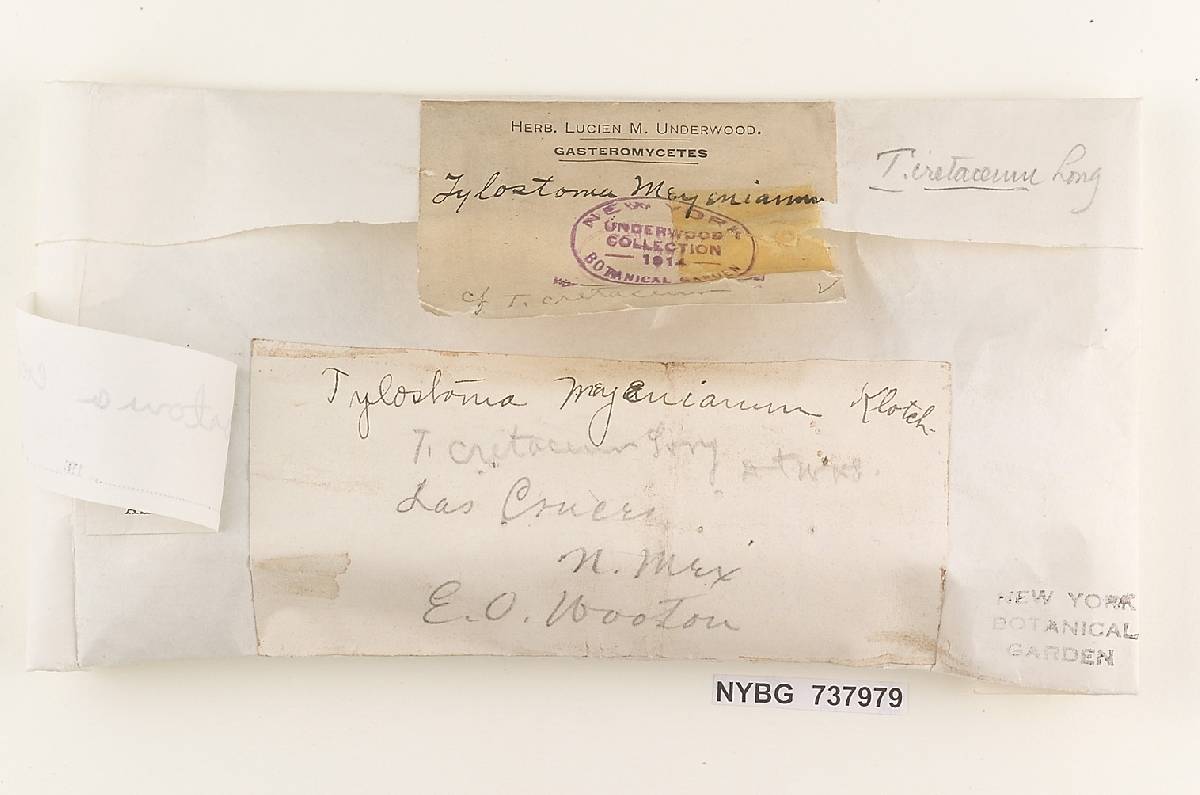 HERB. LUCIEN M. UNDERWOOD.
GASTEROMYCETES
Tylostoma Meyenianum
NEW YORK
UNDERWOOD
COLLECTION
1914
BOTANICAL GARDEN
cf T. cretaceum
T. cretaceum Long
Tylostoma Meyenianum Klotch-
T. cretaceum Long
Las Cruces
N. Mex
E. O. Wooton
NEW YORK
BOTANICAL
GARDEN
NYBG 737979